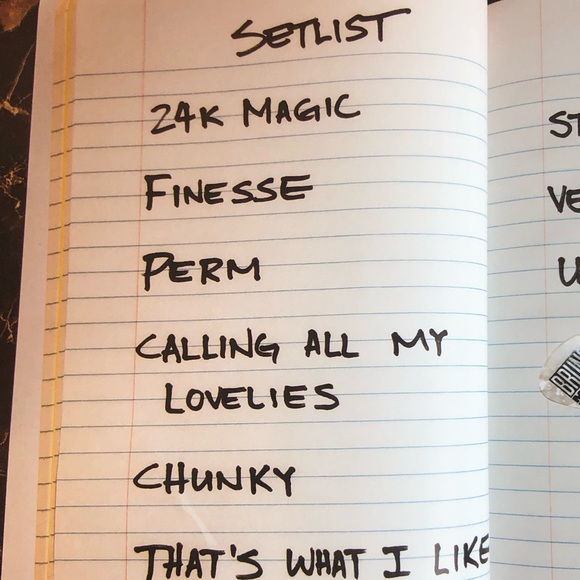 SETLIST
24K MAGIC
FINESSE
PERM
CALLING ALL MY
LOVELIES
CHUNKY
THAT'S WHAT I LIKE
ST
VE